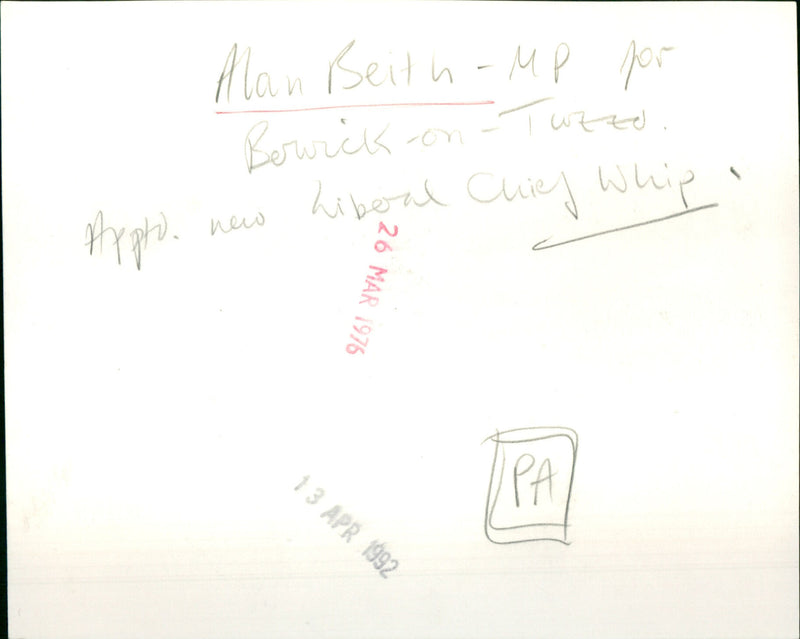 Alan Beith - MP for
Berwick-on-Tweed.
Apptd. new Liberal Chief Whip.
26 MAR 1976
PA
13 APR 1992